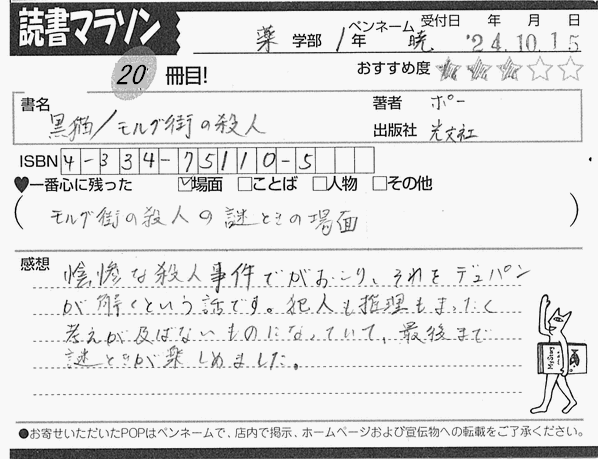 読書マラソン
薬 学部 1年 ペンネーム 暁 受付日 '24年10月15日
20 冊目! おすすめ度 ★★★☆☆
書名 黒猫/モルグ街の殺人
著者 ポー
出版社 光文社
ISBN 4-334-75110-5
♥一番心に残った ☑場面 □ことば □人物 □その他
(モルグ街の殺人の謎ときの場面)
感想
陰惨な殺人事件でがおこり、それをデュパン
が解くという話です。犯人も推理もまったく
考えが及ばないものになっていて、最後まで
謎ときが楽しめました。
●お寄せいただいたPOPはペンネームで、店内で掲示、ホームページおよび宣伝物への転載をご了承ください。